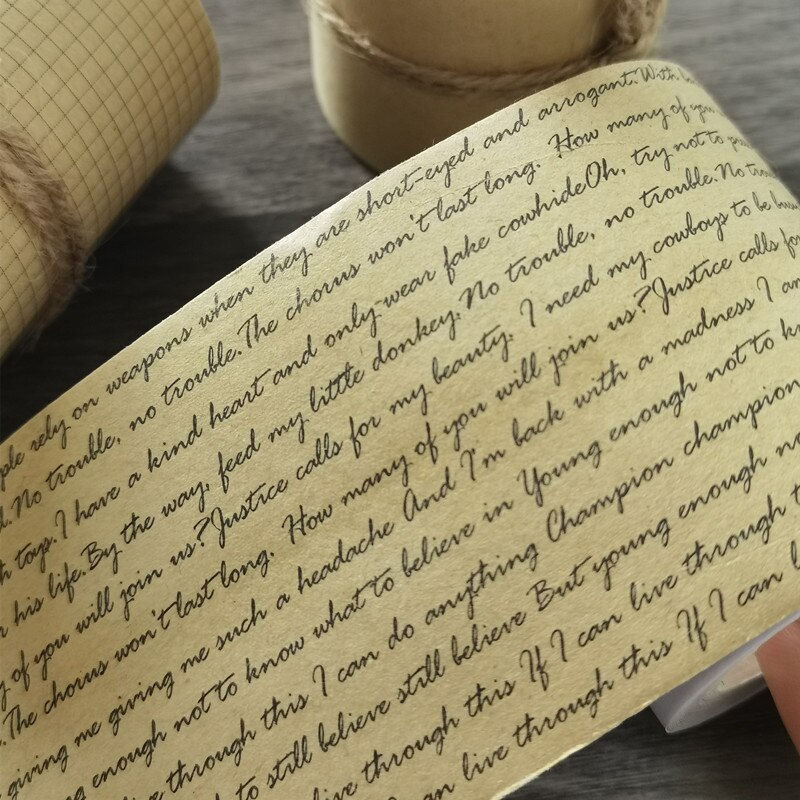 rely on weapons when they are short-eyed and arrogant. With
No trouble, no trouble. The chorus won't last long. How many of you
toys. I have a kind heart and only wear fake cowhide Oh, try not to
his life. By the way, feed my little donkey. No trouble, no trouble. No
of you will join us? Justice calls for my beauty. I need my cowboys to be
The chorus won't last long. How many of you will join us? Justice calls for
giving me giving me such a headache And I'm back with a madness I am
enough not to know what to believe in Young enough not to
through this I can do anything Champion champion
to still believe still believe But young enough
live through this If I can live through
can live through this If I can